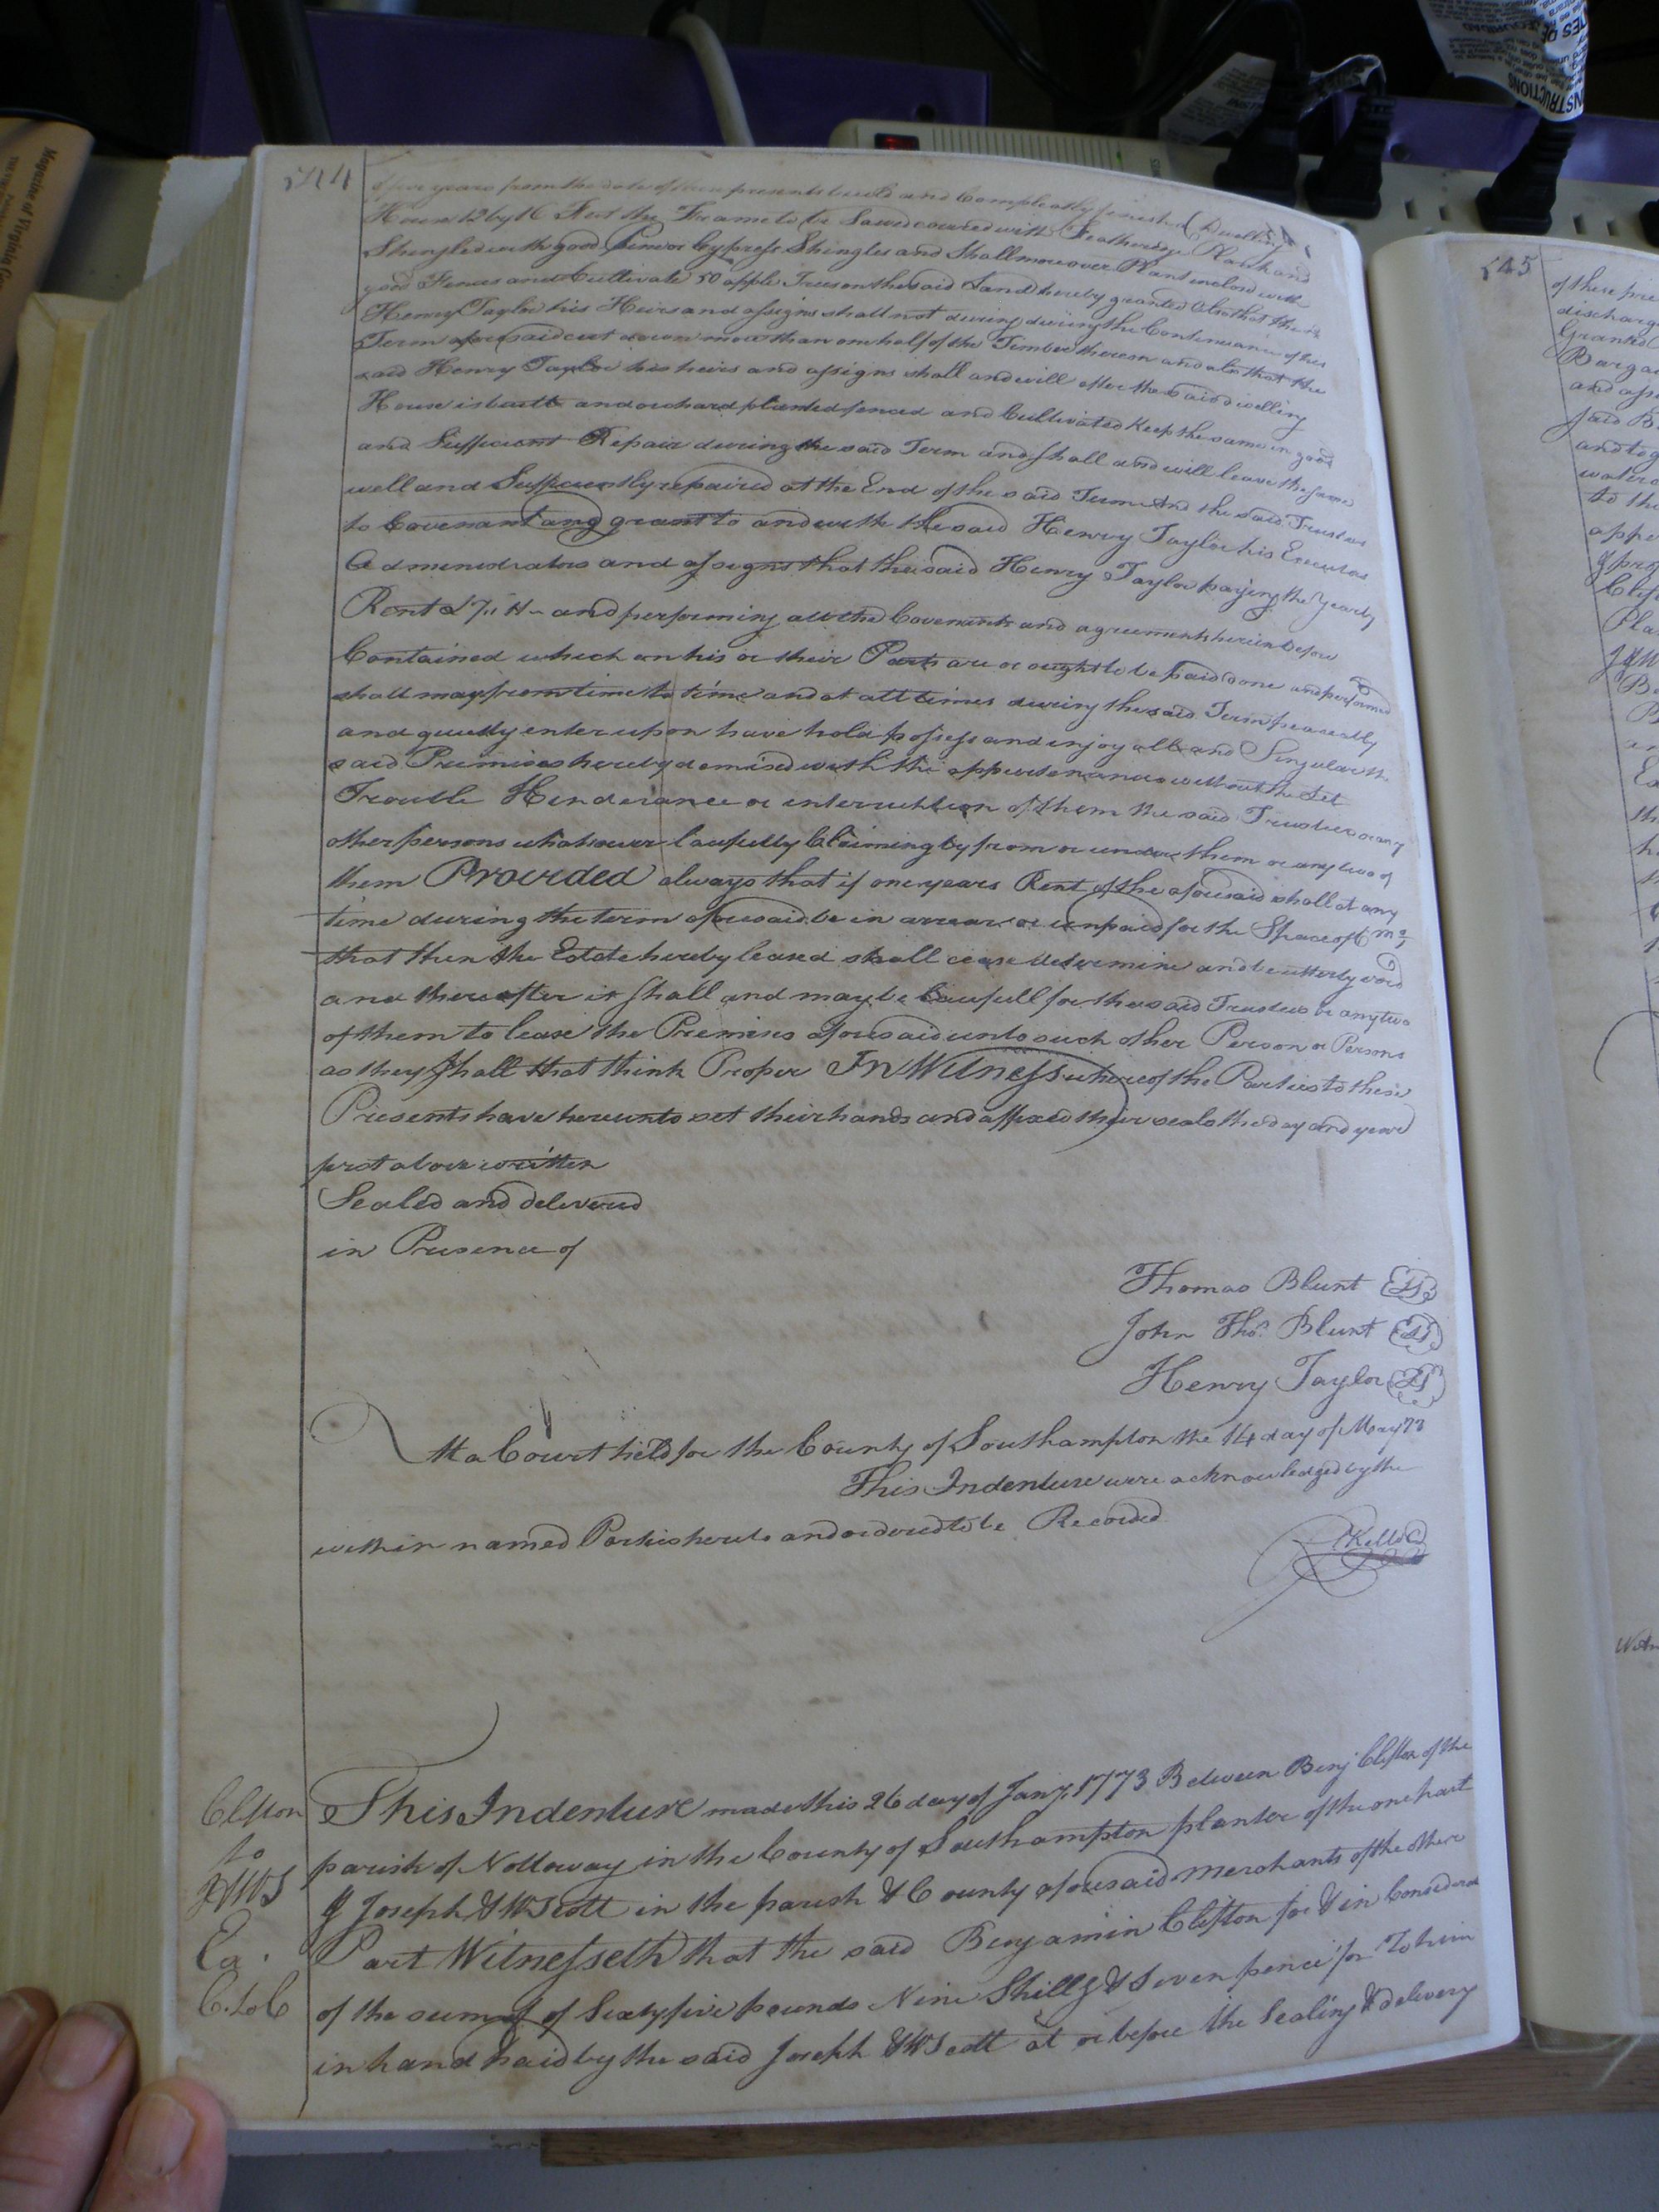 544
of five years from the date of these presents build and Compleatly finished Dwelling
House 12 by 16 Feet the Frame to be Sawed covered with Featheredge Plank and
Shingled with good Pine or Cypress Shingles and Shall moreover Plant inclose with
good Fences and Cultivate 50 apple Trees on the said Land hereby granted Also that the
Henry Taylor his Heirs and assigns shall not during during the Continuance of the
Term aforesaid cut down more than one half of the Timber thereon and also that the
said Henry Taylor his heirs and assigns shall and will after the said dwelling
House is built and orchard planted fenced and Cultivated Keep the same in good
and Sufficient Repair during the said Term and shall and will leave the same
well and Sufficiently repaired at the End of the said Term And the said Trustees
to Covenant and grant to and with the said Henry Taylor his Executors
Administrators and assigns that the said Henry Taylor paying the Yearly
Rent and performing all the Covenants and agreements herein before
Contained which on his or their Parts are or ought to be paid done and performed
shall may from time to time and at all times during the said Term peaceably
and quietly enter upon have hold possess and enjoy all and Singular the
said Premises hereby demised with the appurtenances without the Let
Trouble Hinderance or interruption of them the said Trustees or any
other persons whatsoever lawfully Claiming by from or under them or any two of
them Provided always that if one years Rent of the aforesaid shall at any
time during the term aforesaid be in arrear or unpaid for the Space of 6 mo.
that then the Estate hereby leased shall cease determine and be utterly void
and thereafter it shall and may be Lawfull for the said Trustees or any two
of them to lease the Premises aforesaid unto such other Person or Persons
as they shall that think Proper In Witness whereof the Parties to these
Presents have hereunto set their hands and affixed their seals the day and year
first above written
Sealed and delivered
in Presence of
Thomas Blunt LS
John Thos. Blunt LS
Henry Taylor LS
At a Court held for the County of Southampton the 14 day of May 73
This Indenture were acknowledged by the
within named Parties hereto and ordered to be Recorded
RKello C
Clifton
to
J&WS
Ex.
C. to C
This Indenture made this 26 day of Jany. 1773 Between Benj Clifton of the
parish of Nottoway in the County of Southampton planter of the one part
& Joseph & W Scott in the parish & County aforesaid Merchants of the other
Part Witnesseth that the said Benjamin Clifton for & in Considera
of the sum of of Sixty five pounds Nine Shills & Seven pence To him
in hand paid by the said Joseph & W Scott at or before the Sealing & delivery
545
of these pre
discharg
Granted
Barga
and
said B
and tog
water
to the
appe
Clif
Pla
Magazine of Virginia Ge
INSTRUCTIONS